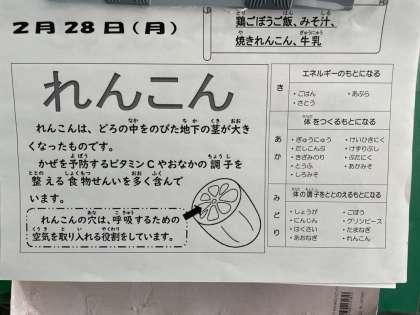 2月28日(月)
鶏ごぼうご飯、みそ汁、
焼きれんこん、牛乳
れんこん
れんこんは、どろの中をのびた地下の茎が大き
くなったものです。
かぜを予防するビタミンCやおなかの調子を
整える食物せんいを多く含んで
います。
れんこんの穴は、呼吸するための
空気を取り入れる役割をしています。
き
エネルギーのもとになる
・ごはん ・あぶら
・さとう
あか
体をつくるもとになる
・ぎゅうにゅう ・けいひきにく
・だしこんぶ ・けずりぶし
・きざみのり ・ぶたにく
・とうふ ・あかみそ
・しろみそ
みどり
体の調子をととのえるもとになる
・しょうが ・ごぼう
・にんじん ・グリンピース
・はくさい ・たまねぎ
・あおねぎ ・れんこん